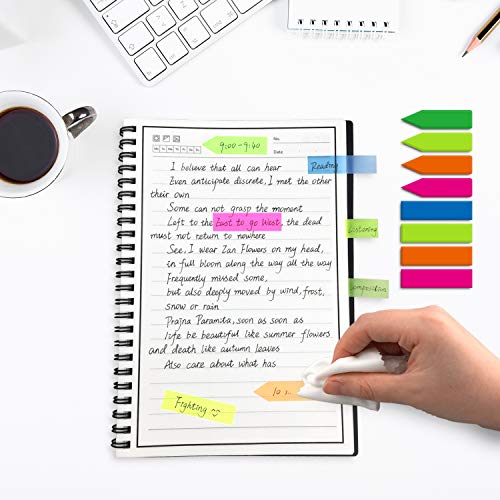 9:00-9:40
No.
Mo Tu We Th Fr Sa Su
Date
I believe that all can hear
Reading
Even anticipate discrete, I met the other
their own
Some can not grasp the moment
Left to the East to go West, the dead
Listening
must not return to nowhere
See, I wear Zan Flowers on my head,
in full bloom along the way all the way
Frequently missed some,
Composition
but also deeply moved by wind, frost,
snow or rain
Prajna Paramita, soon as soon as
life be beautiful like summer flowers
and death like autumn leaves
Also care about what has
10
Fighting